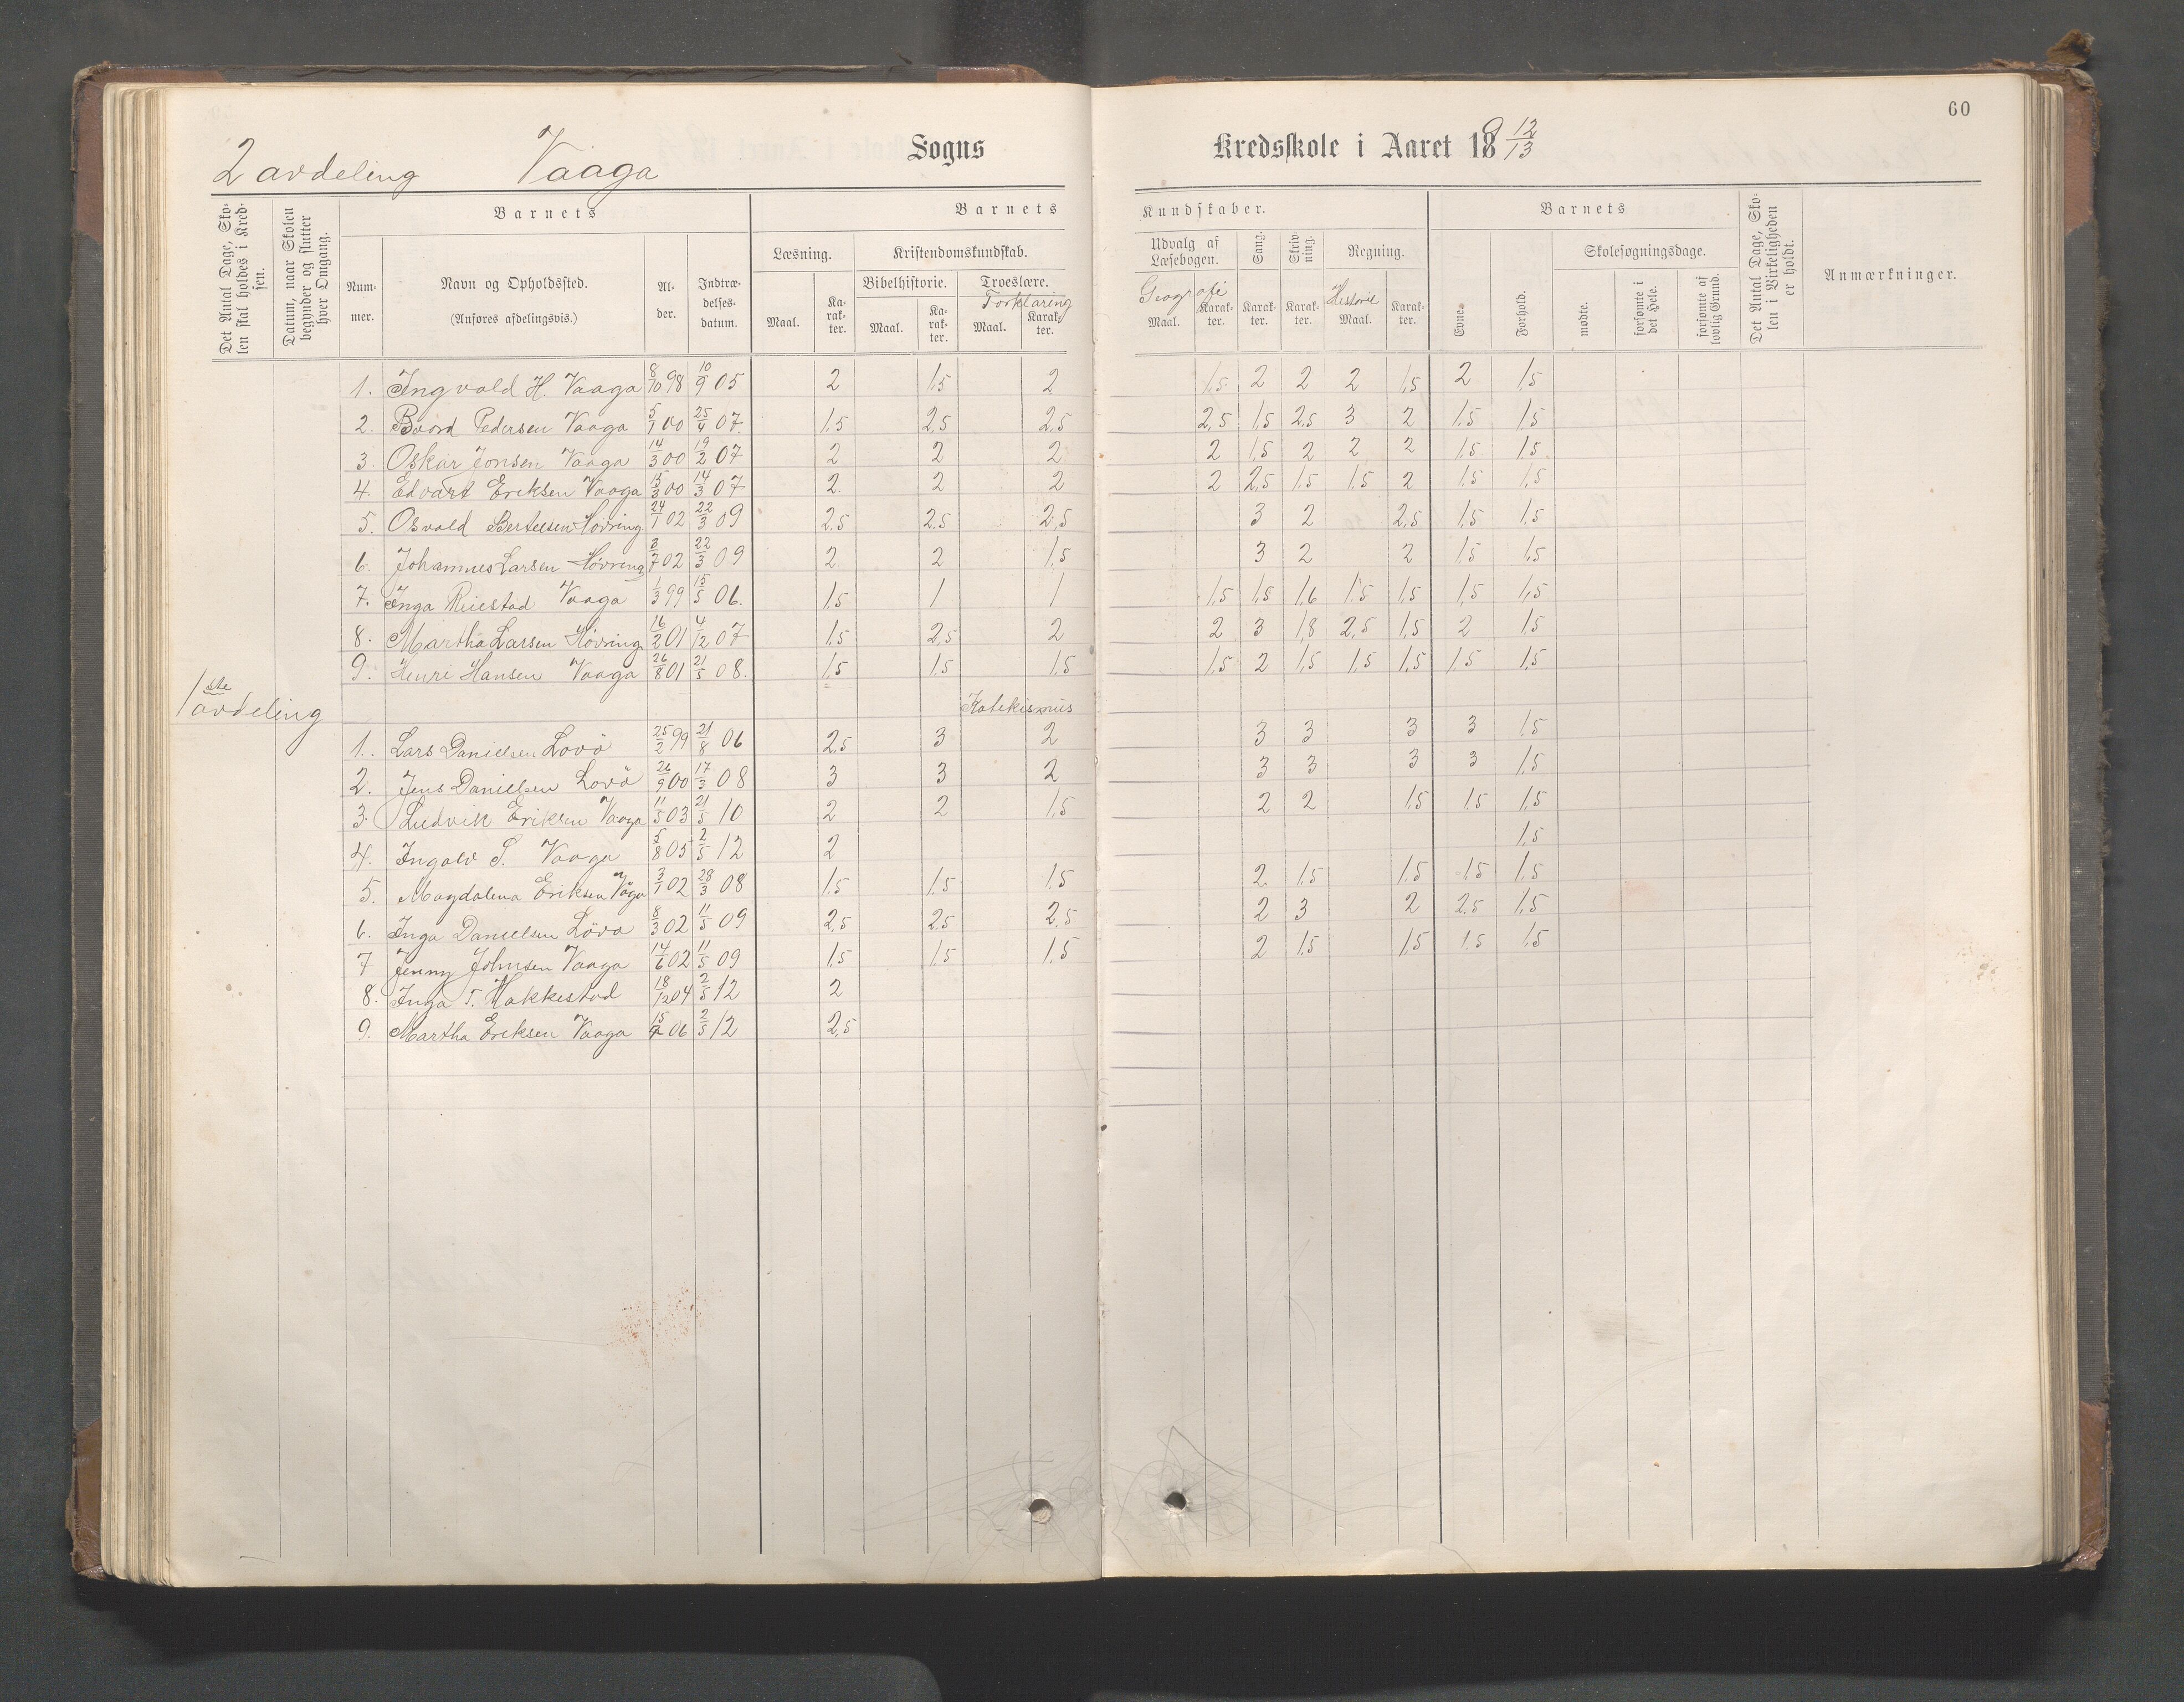 60
2 avdeling Vaaga Sogns Kredsskole i Aaret 1812/13
Det Antal Dage, Skolen skal holdes i Kredsen.
Datum, naar Skolen begynder og slutter hver Omgang.
Barnets Barnets Kundskaber. Barnets
Nummer. Navn og Opholdssted. (Anføres afdelingsvis.) Alder. Indtrædelsesdatum.
Læsning. Maal. Karakter.
Kristendomskundskab. Bibelhistorie. Maal. Karakter. Troeslære. Forklaring Maal. Karakter.
Udvalg af Læsebogen. Geografi Maal. Karakter.
Sang. Karakter. Skrivning. Karakter.
Regning. Historie Maal. Karakter.
Evner. Forhold.
Skolesøgningsdage. mødte. forsømte i det Hele. forsømte af lovlig Grund.
Det Antal Dage, Skolen i Virkeligheden er holdt.
Anmærkninger.
1. Ingvald H. Vaaga 8/10 98 10/9 05 2 1,5 2 1,5 2 2 2 1,5 2 1,5
2. Baord Pedersen Vaaga 5/1 00 25/4 07. 1,5 2,5 2,5 2,5 1,5 2,5 3 2 1,5 1,5
3. Oskar Jonsen Vaaga 14/3 00 19/2 07 2 2 2 2 1,5 2 2 2 1,5 1,5
4. Edvart Eriksen Vaaga 15/3 00 14/3 07 2 2 2 2 2,5 1,5 1,5 2 1,5 1,5
5. Osvald Bertelsen Hövring 24/1 02 22/3 09 2,5 2,5 2,5 3 2 2,5 1,5 1,5
6. Johannes Larsen Hövring 3/7 02 22/3 09 2 2 1,5 3 2 2 1,5 1,5
7. Inga Reiestad Vaaga 1/3 99 15/5 06. 1,5 1 1 1,5 1,5 1,6 1,5 1,5 1,5 1,5
8. Martha Larsen Hövring 16/2 01 4/12 07 1,5 2,5 2 2 3 1,8 2,5 1,5 2 1,5
9. Henri Hansen Vaaga 26/8 01 21/5 08. 1,5 1,5 1,5 1,5 2 1,5 1,5 1,5 1,5 1,5
1ste avdeling Katekismus
1. Lars Danielsen Lovö 25/2 99 21/8 06 2,5 3 2 3 3 3 3 1,5
2. Jens Danielsen Lovö 26/9 00 17/3 08 3 3 2 3 3 3 3 1,5
3. Ludvik Eriksen Vaaga 11/5 03 21/5 10 2 2 1,5 2 2 1,5 1,5 1,5
4. Ingolv S. Vaaga 5/8 05 2/5 12 2 1,5
5. Magdalena Eriksen Våga 3/1 02 28/3 08 1,5 1,5 1,5 2 1,5 1,5 1,5 1,5
6. Inga Danielsen Lövö 8/3 02 11/5 09 2,5 2,5 2,5 2 3 2 2,5 1,5
7 Jenny Johnsen Vaaga 14/6 02 11/5 09 1,5 1,5 1,5 2 1,5 1,5 1,5 1,5
8. Inga T. Hakkestad 18/12 04 2/5 12 2
9. Martha Eriksen Vaaga 06 2/5 12 2,5